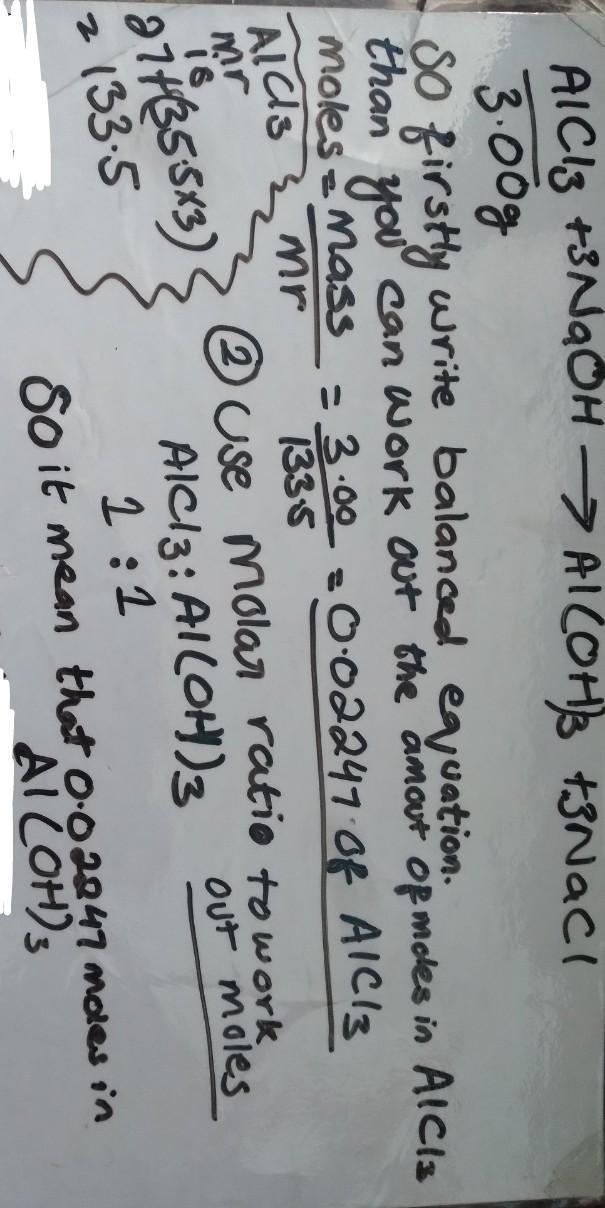 AlCl3 +3NaOH → Al(OH)3 +3NaCl
3.00g
So firstly write balanced equation.
than you can work out the amout of moles in AlCl3
moles = mass = 3.00 = 0.02247 of AlCl3
mr 133.5
AlCl3
mr
is
27+(35.5x3)
= 133.5
② Use Molar ratio to work
out moles
AlCl3 : Al(OH)3
1 : 1
So it mean that 0.02247 moles in
Al(OH)3